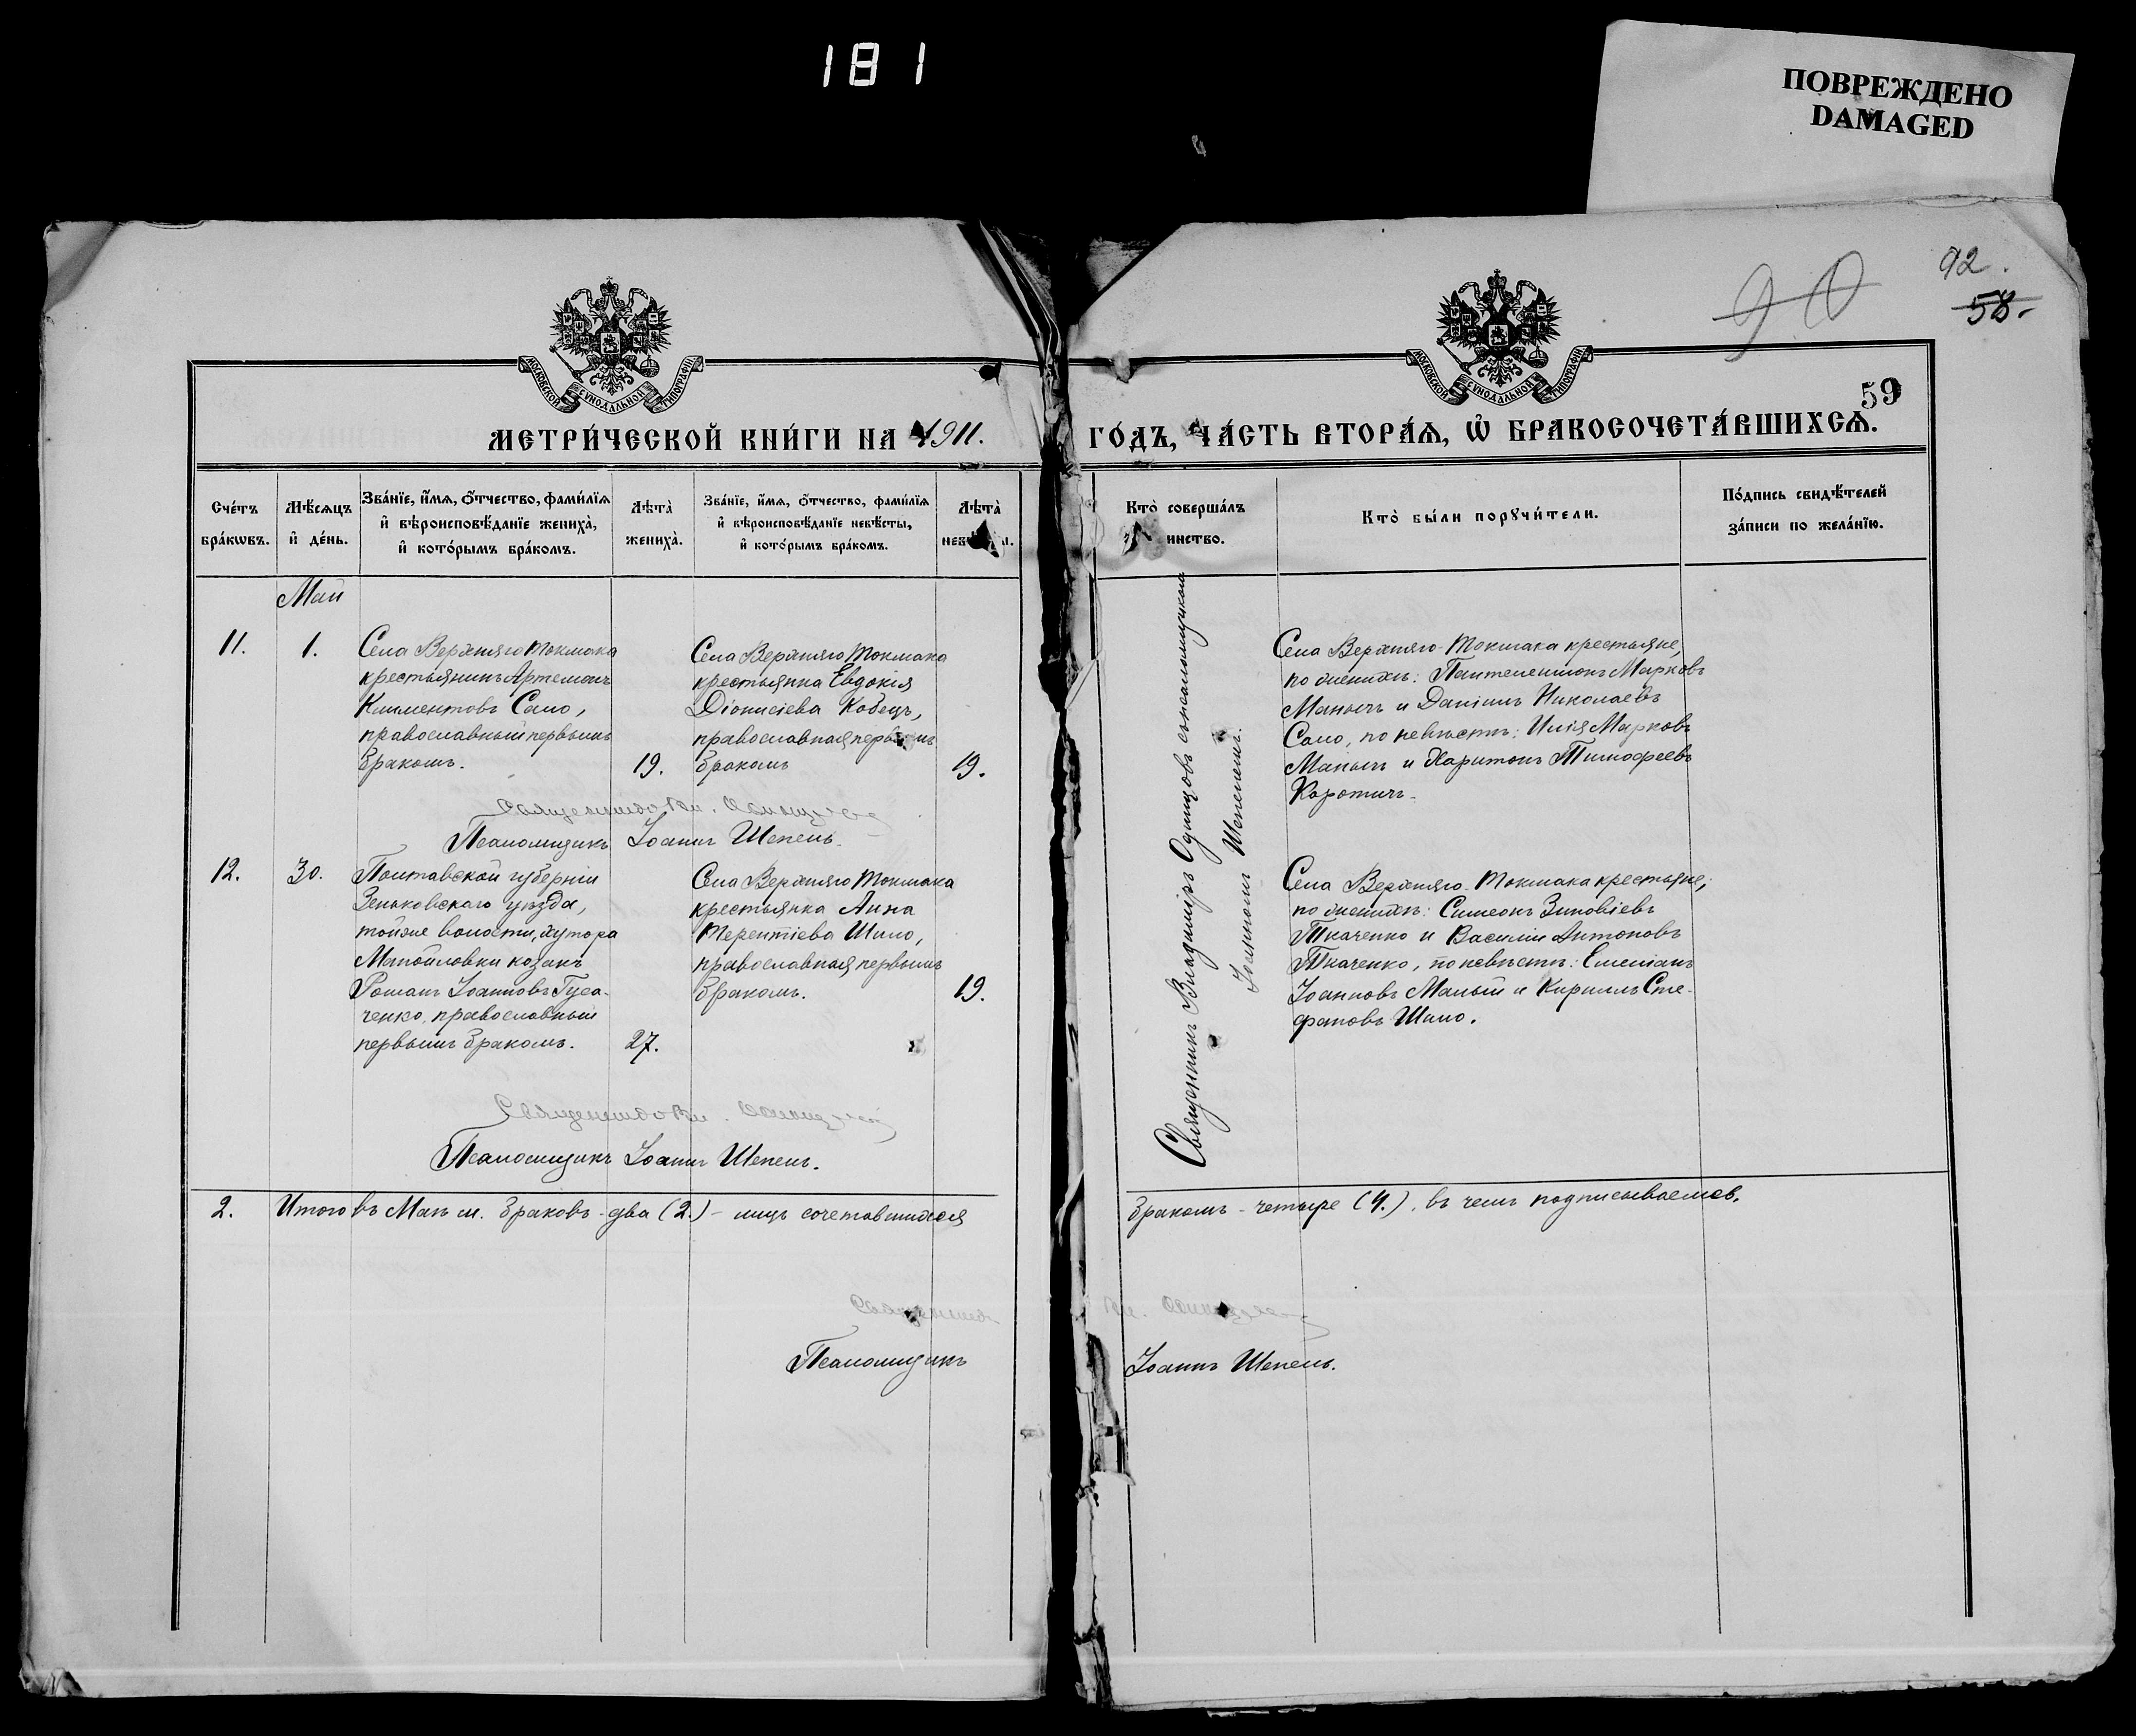 181
ПОВРЕЖДЕНО
DAMAGED
92.
58.
90
59
МОСКОВСКОЙ СУНОДАЛЬНОЙ ТИПОГРАФІИ
МОСКОВСКОЙ СУНОДАЛЬНОЙ ТИПОГРАФІИ
МЕТРИ́ЧЕСКОЙ КНИ́ГИ НА 1911. ГО́ДЪ, ЧА́СТЬ ВТОРА́Я, Ѡ БРАКОСОЧЕТА́ВШИХСЯ.
Сче́тъ
бра́кωвъ.
Мѣ́сяцъ
и҆ де́нь.
Зва́нїе, и҆́мя, ѻ҆́тчество, фами́лїя
и҆ вѣроисповѣ́данїе жениха̀,
и҆ кото́рымъ бра́комъ.
Лѣта̀
жениха̀.
Зва́нїе, и҆́мя, ѻ҆́тчество, фами́лїя
и҆ вѣроисповѣ́данїе невѣ́сты,
и҆ кото́рымъ бра́комъ.
Лѣта̀
Кто̀ соверша́лъ
инство.
Кто̀ бы́ли порꙋчи́тели.
По́дпись свидѣ́телей
за́писи по жела́нїю.
Май
11.
1.
Села Верхняго Токмака
крестьянинъ Артемонъ
Климентовъ Сало,
православный первымъ
бракомъ.
19.
Села Верхняго Токмака
крестьянка Евдокія
Діонисіева Кобецъ,
православная первымъ
бракомъ
19.
Священникъ Владимиръ Одинцовъ съ псаломщикомъ
Іоанномъ Шепелемъ.
Села Верхняго-Токмака крестьяне,
по женихѣ: Пантелеимонъ Марковъ
Малычъ и Даніилъ Николаевъ
Сало, по невѣстѣ: Илія Марковъ
Малычъ и Харитонъ Тимофеевъ
Коротичъ.
Священникъ Вл. Одинцовъ
Псаломщикъ Іоаннъ Шепель.
12.
30.
Полтавской губерніи
Зеньковскаго уѣзда,
тойже волости, хутора
Манойловки козакъ
Романъ Іоанновъ Гуса-
ченко, православный
первымъ бракомъ.
27.
Села Верхняго Токмака
крестьянка Анна
Терентіева Шило,
православная первымъ
бракомъ.
19.
Села Верхняго-Токмака крестьяне;
по женихѣ: Симеонъ Зиновіевъ
Ткаченко и Василій Антоновъ
Ткаченко, по невѣстѣ: Емеліанъ
Іоанновъ Малый и Кириллъ Сте-
фановъ Шило.
Священникъ Вл. Одинцовъ
Псаломщикъ Іоаннъ Шепель.
2. Итого въ Маѣ м. браковъ - два (2.) - лицъ сочетавшихся бракомъ - четыре (4.), въ чемъ подписываемся.
Священникъ Вл. Одинцовъ
Псаломщикъ Іоаннъ Шепель.